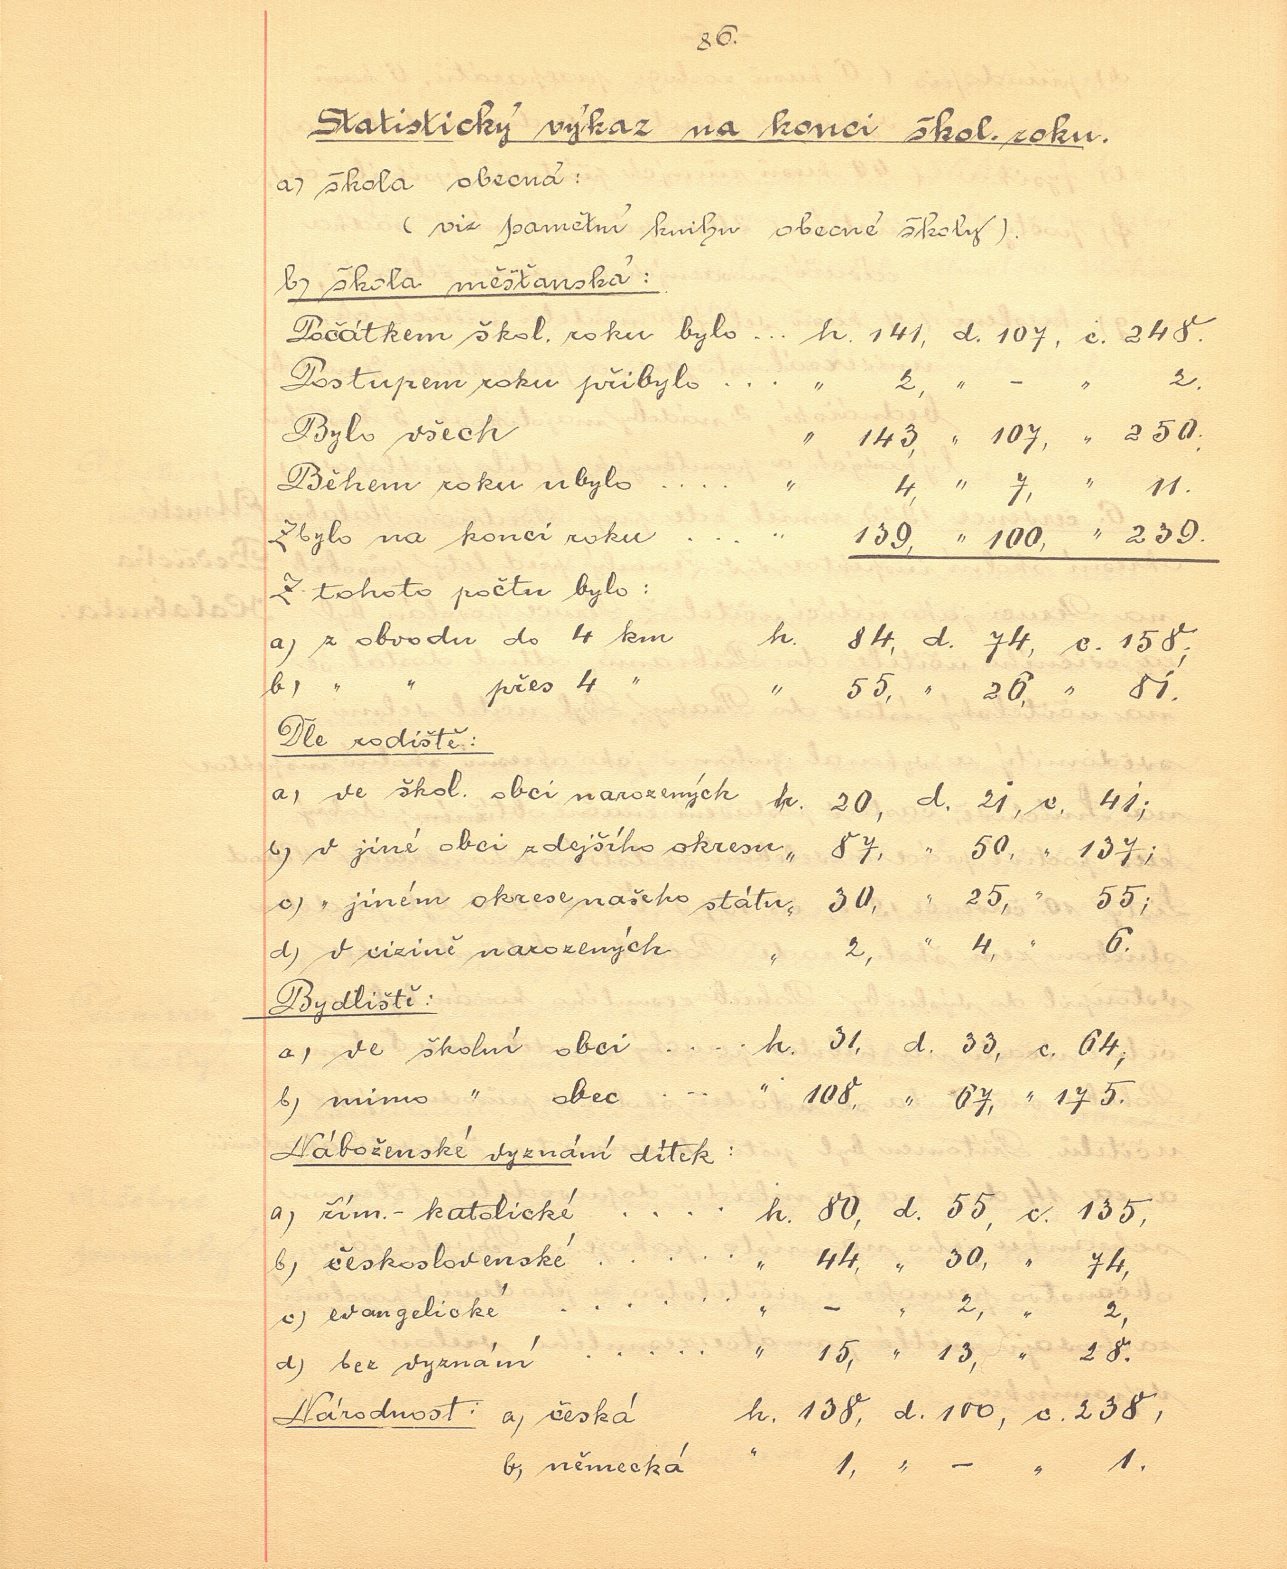 86.
Statistický výkaz na konci škol. roku.
a) škola obecná:
( viz pamětní knihu obecné školy).
b) škola měšťanská:
Počátkem škol. roku bylo ... h. 141, d. 107, c. 248.
Postupem roku přibylo . . . . " 2, " – " 2.
Bylo všech " 143, " 107, " 250.
Během roku ubylo . . . . " 4, " 7, " 11.
Zbylo na konci roku . . . " 139, " 100, " 239.
Z tohoto počtu bylo:
a) z obvodu do 4 km h. 84, d. 74, c. 158;
b) " " přes 4 " " 55, " 26, " 81.
Dle rodiště:
a) ve škol. obci narozených h. 20, d. 21, c. 41;
b) v jiné obci zdejšího okresu " 87, " 50, " 137;
c) " jiném okrese našeho státu " 30, " 25, " 55;
d) v cizině narozených " 2, " 4, " 6.
Bydliště:
a) ve školní obci . . . . h. 31, d. 33, c. 64;
b) mimo " obec . - - " 108, " 67, " 175.
Náboženské vyznání dítek:
a) řím.- katolické . . . . h. 80, d. 55, c. 135,
b) československé . . . . . " 44, " 30, " 74,
c) evangelické . . . . . . " – " 2, " 2,
d) bez vyznání . . . . . " 15, " 13, " 28.
Národnost: a) česká h. 138, d. 100, c. 238,
b) německá " 1, " – " 1.